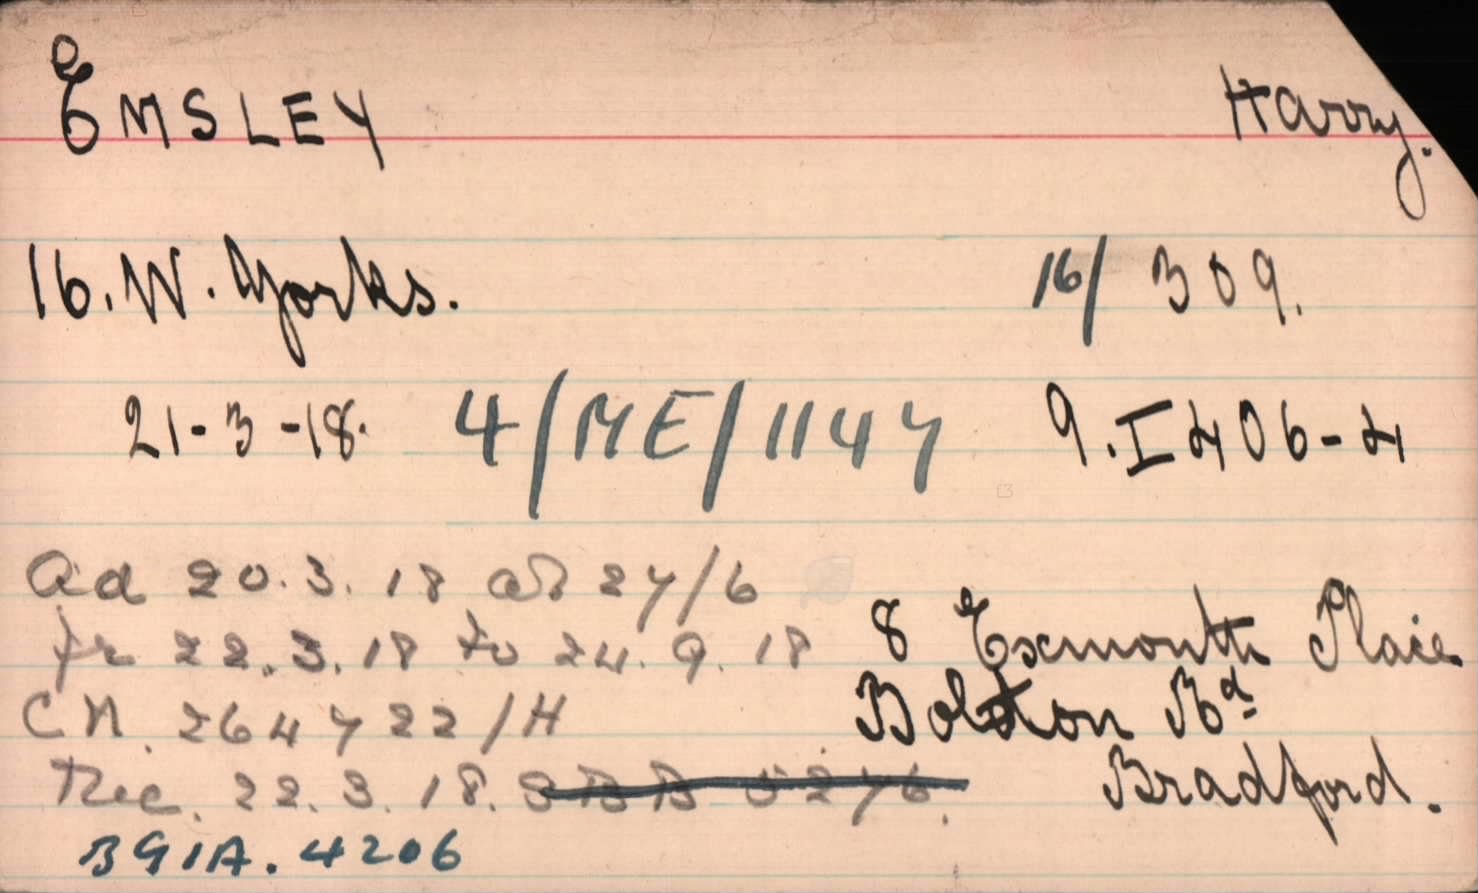 EMSLEY Harry.
16. W. Yorks. 16/ 309.
21-3-18. 4/ME/1147 9.I406-4
Ad 20.3.18 at 27/6
fr 22.3.18 to 24.9.18
8 Exmouth Place
CN. 264722/H
Bolton Rd
Rec. 22.3.18.
Bradford.
391A. 4206